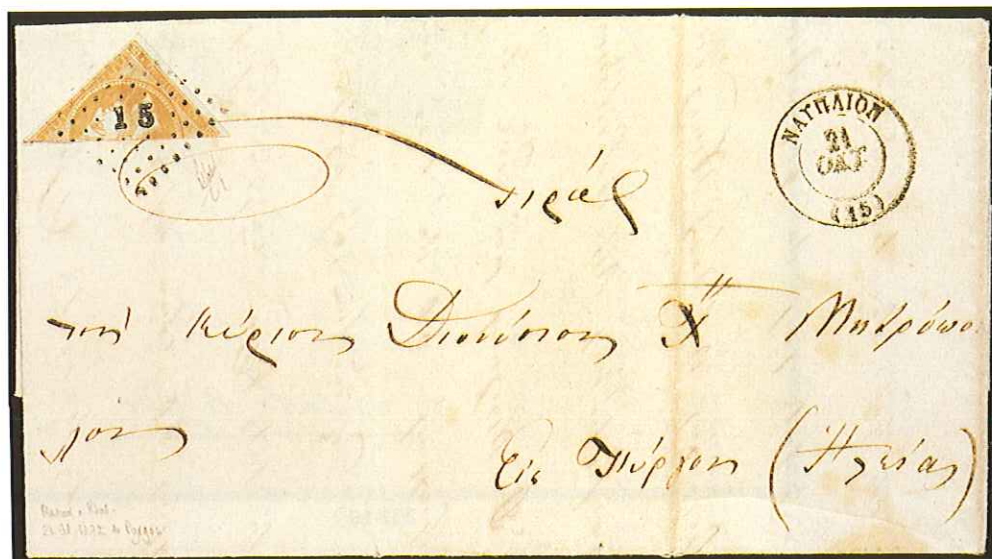 15
ΝΑΥΠΛΙΟΝ
21
ΟΚΤ
(15)
πρὸς
τὸν Κύριον Διονύσιον Χ" Μητρόπο
λον
Εἰς Πύργον (Ἠλείας)